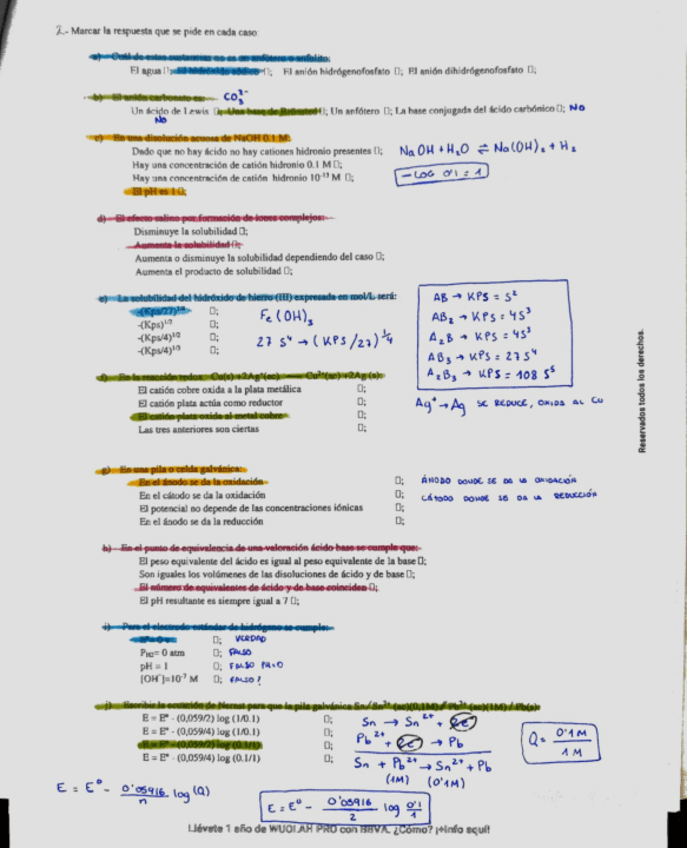 2.- Marcar la respuesta que se pide en cada caso:
a) Cuál de estas sustancias no es un anfótero o anfolito:
El agua ▯; El hidróxido sódico ▯; El anión hidrógenofosfato ▯; El anión dihidrógenofosfato ▯;
b) El anión carbonato es: CO₃²⁻
Un ácido de Lewis ▯; Una base de Brönsted ▯; Un anfótero ▯; La base conjugada del ácido carbónico ▯; NO
NO
c) En una disolución acuosa de NaOH 0.1 M:
Dado que no hay ácido no hay cationes hidronio presentes ▯; NaOH + H₂O ⇌ Na(OH)₂ + H₂
Hay una concentración de catión hidronio 0.1 M ▯;
Hay una concentración de catión hidronio 10⁻¹³ M ▯; -LOG 0'1 = 1
El pH es 1 ▯;
d) El efecto salino por formación de iones complejos:
Disminuye la solubilidad ▯;
Aumenta la solubilidad ▯;
Aumenta o disminuye la solubilidad dependiendo del caso ▯;
Aumenta el producto de solubilidad ▯;
e) La solubilidad del hidróxido de hierro (III) expresada en mol/L será:
-(Kps/27)¹/⁴ ▯;
-(Kps)¹/² ▯;
-(Kps/4)¹/² ▯;
-(Kps/4)¹/³ ▯;
Fe(OH)₃
27 S⁴ → (KPS/27)^¼
AB → KPS = S²
AB₂ → KPS = 4S³
A₂B → KPS = 4S³
AB₃ → KPS = 27S⁴
A₂B₃ → KPS = 108 S⁵
f) En la reacción redox: Cu(s)+2Ag⁺(ac) —— Cu²⁺(ac)+2Ag (s):
El catión cobre oxida a la plata metálica ▯;
El catión plata actúa como reductor ▯; Ag⁺ → Ag SE REDUCE, OXIDA AL CU
El catión plata oxida al metal cobre ▯;
Las tres anteriores son ciertas ▯;
g) En una pila o celda galvánica:
En el ánodo se da la oxidación ▯; ÁNODO DONDE SE DA LA OXIDACIÓN
En el cátodo se da la oxidación ▯; CÁTODO DONDE SE DA LA REDUCCIÓN
El potencial no depende de las concentraciones iónicas ▯;
En el ánodo se da la reducción ▯;
h) En el punto de equivalencia de una valoración ácido base se cumple que:
El peso equivalente del ácido es igual al peso equivalente de la base ▯;
Son iguales los volúmenes de las disoluciones de ácido y de base ▯;
El número de equivalentes de ácido y de base coinciden ▯;
El pH resultante es siempre igual a 7 ▯;
i) Para el electrodo estándar de hidrógeno se cumple:
▯; VERDAD
P_H2= 0 atm ▯; FALSO
pH = 1 ▯; FALSO PH=0
[OH⁻]=10⁻⁷ M ▯; FALSO!
j) Escribir la ecuación de Nernst para que la pila galvánica Sn/Sn²⁺(ac)(0,1M)//Pb²⁺(ac)(1M)/Pb(s)
E = Eº - (0,059/2) log (1/0.1) ▯;
E = Eº - (0,059/4) log (1/0.1) ▯;
E = Eº - (0,059/2) log (0.1/1) ▯;
E = Eº - (0,059/4) log (0.1/1) ▯;
Sn → Sn²⁺ + 2e⁻
Pb²⁺ + 2e⁻ → Pb
Sn + Pb²⁺ → Sn²⁺ + Pb
(1M) (0'1M)
Q = 0'1M / 1M
E = Eº - 0'05916/n log (Q)
E = Eº - 0'05916/2 log 0'1/1
Reservados todos los derechos.
Llévate 1 año de WUOLAH PRO con BBVA. ¿Cómo? ¡+Info aquí!